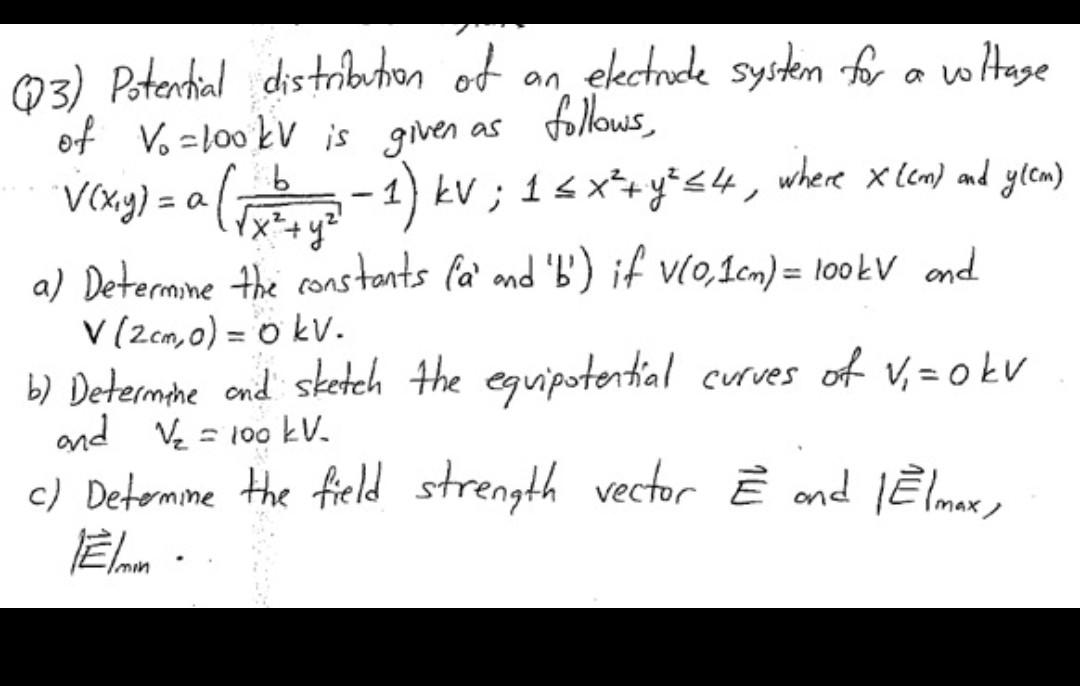 Q3) Potential distribution of an electrode system for a voltage
of V₀ = 100 kV is given as follows,
V(x,y) = a ( b / √(x²+y²) - 1 ) kV ; 1 ≤ x²+y² ≤ 4 , where x (cm) and y (cm)
a) Determine the constants ('a' and 'b') if V(0,1cm) = 100 kV and
V(2cm,0) = 0 kV.
b) Determine and sketch the equipotential curves of V₁ = 0 kV
and V₂ = 100 kV.
c) Determine the field strength vector E⃗ and |E⃗|max,
|E⃗|min .